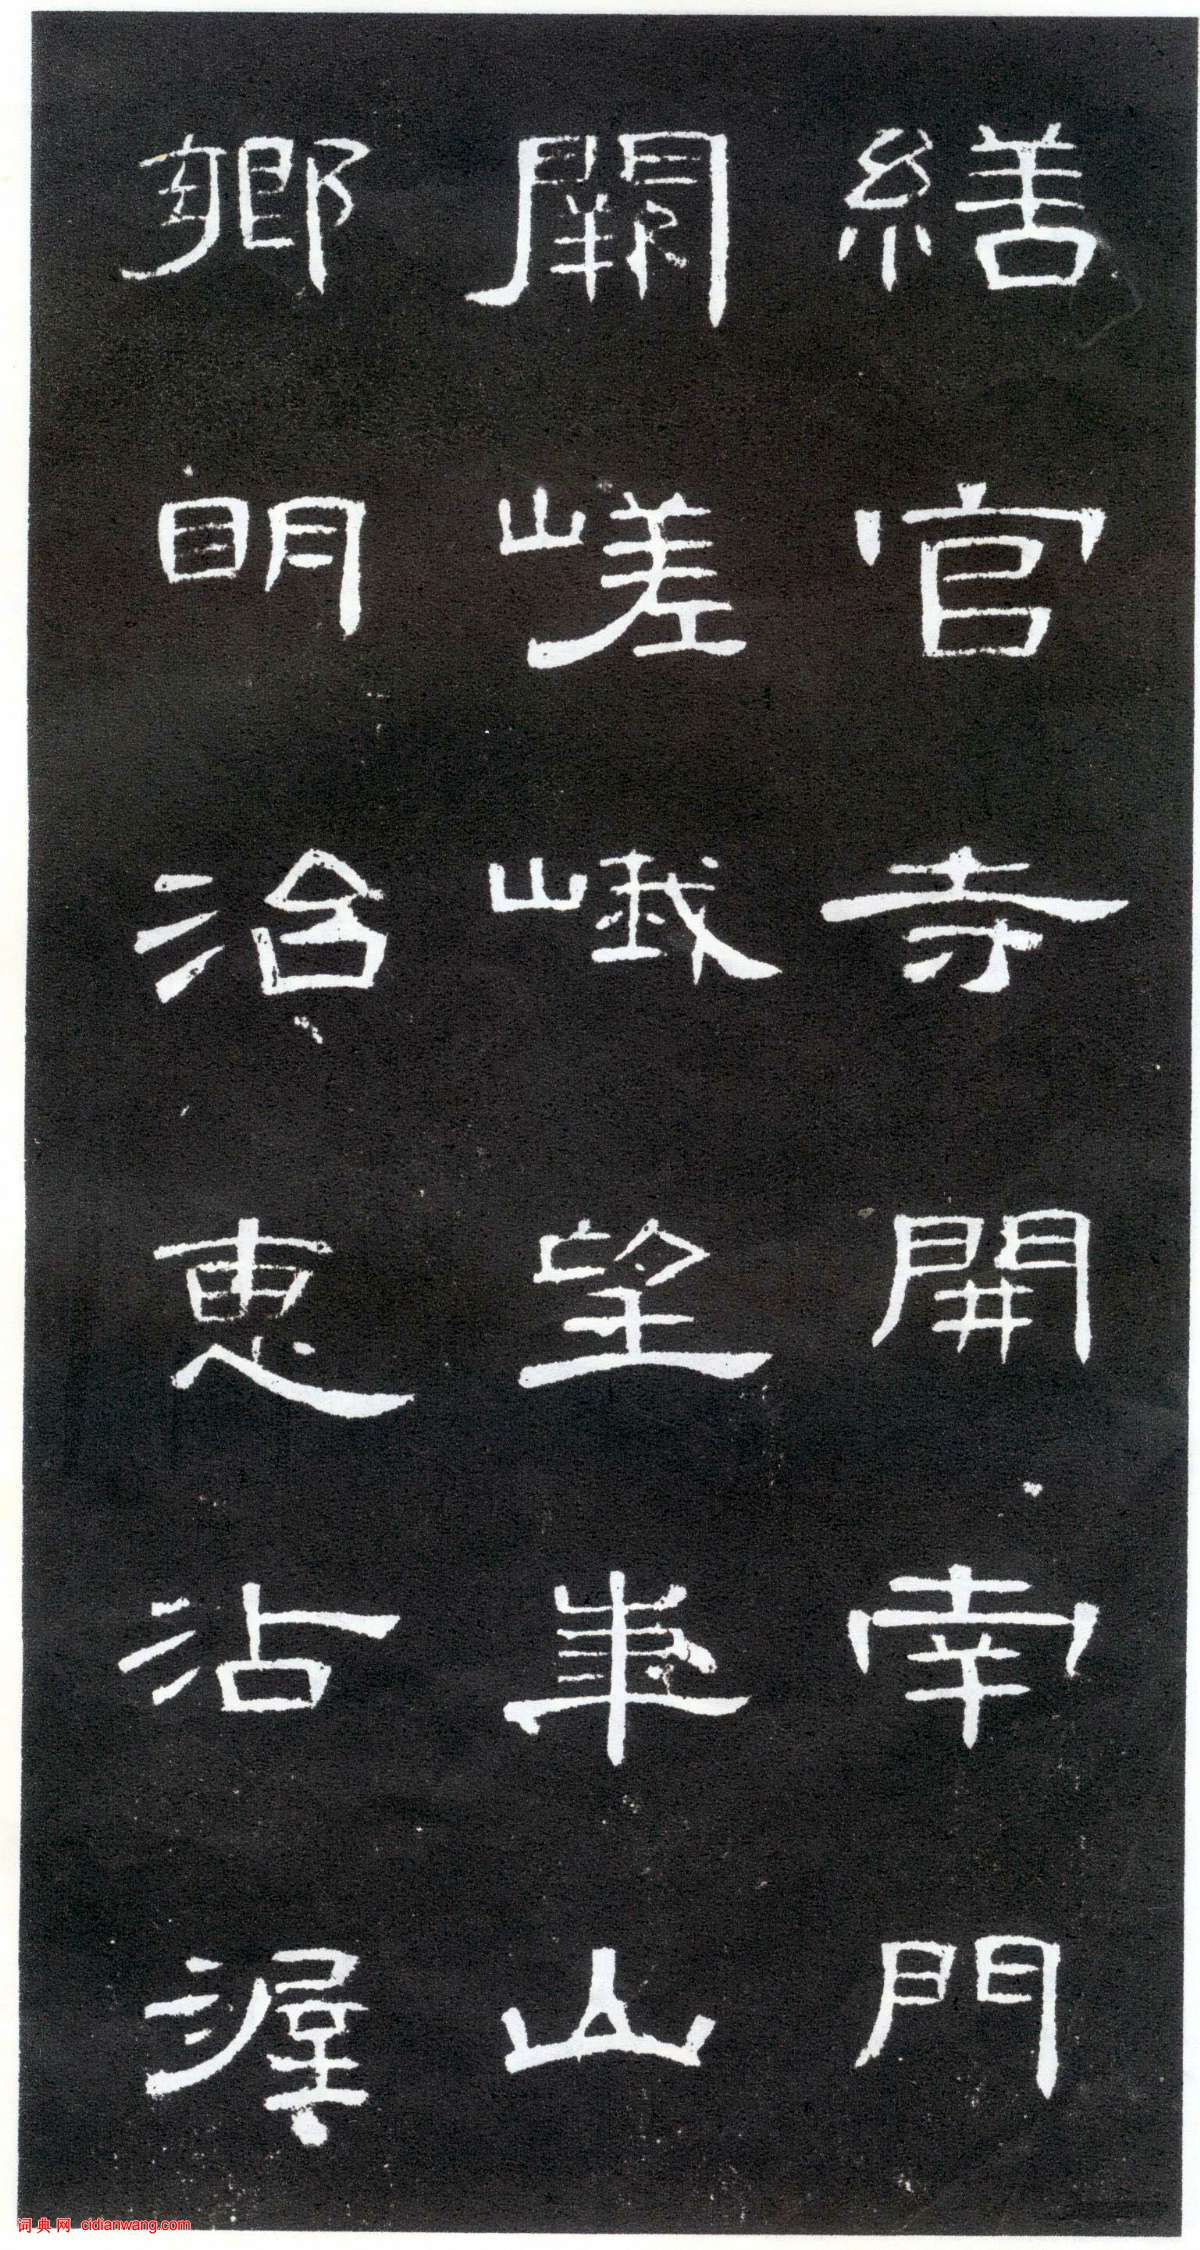 繕官寺開南門
闕嵯峨望華山
鄉明治惠沾渥
词典网 cidianwang.com